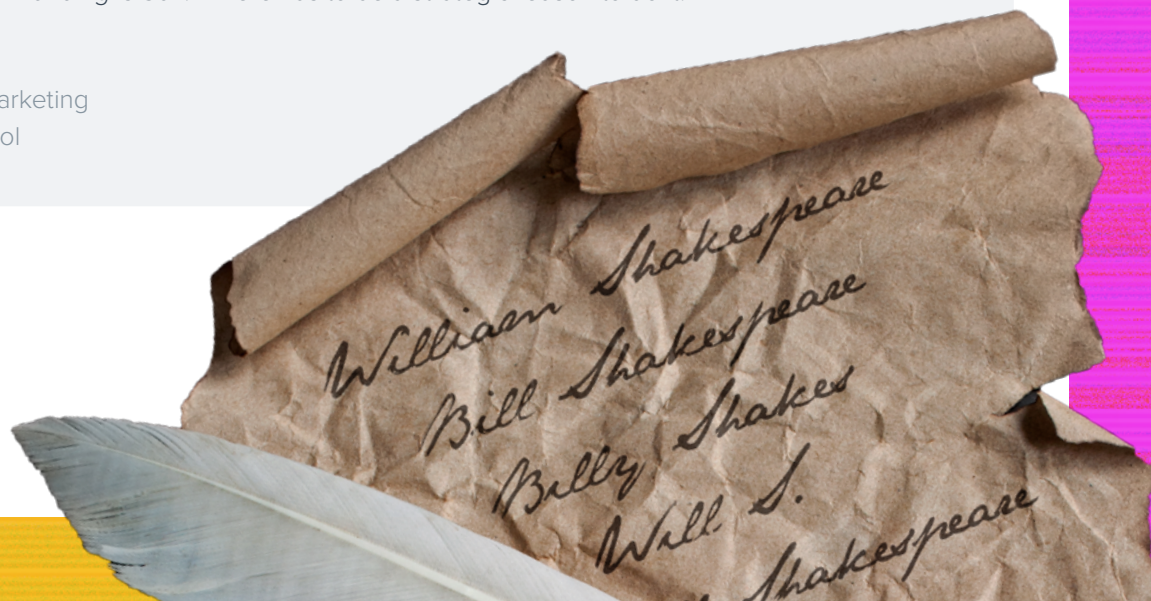 arketing
ol
William Shakespeare
Bill Shakespeare
Billy Shakes
Will S.
Shakespeare